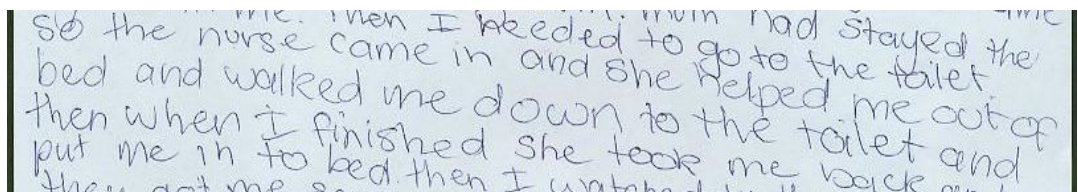 mum had stayed the
me. Then I needed to go to the toilet
so the nurse came in and she helped me out of
bed and walked me down to the toilet and
then when I finished she took me back
put me in to bed. then I watched
they got me